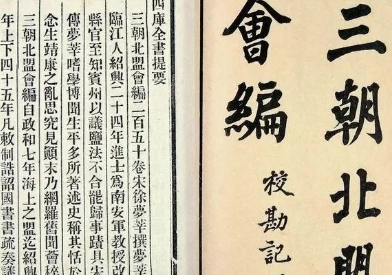 三朝北盟
會編
校勘記
四庫全書提要
三朝北盟會編二百五十卷宋徐夢莘撰夢莘
臨江人紹興二十四年進士爲南安軍教授改
縣官至知賓州以議鹽法不合罷歸事蹟具宋
傳夢莘嗜學博聞生平多所著述史稱其恬於
念生靖康之亂思究見顚末乃網羅舊聞薈稡
三朝北盟會編自政和七年海上之盟迄紹興
年上下四十五年凡敕制誥詔國書書疏奏議